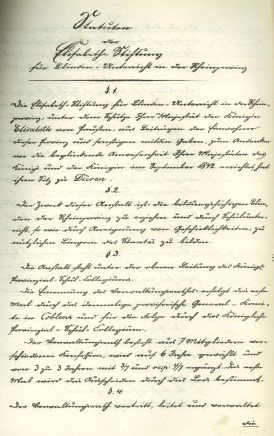 Statuten
der
Elisabeth-Stiftung
für Blinden-Unterricht in der Rheinprovinz
§ 1.
Die Elisabeth-Stiftung für Blinden-Unterricht in der Rhein-
provinz, unter dem Schutze Ihrer Majestät der Königin
Elisabeth von Preußen, aus Beiträgen der Bewohner
dieser Provinz und sonstigen milden Gaben, zum Andenken
an die beglückende Anwesenheit Ihrer Majestäten des
Königs und der Königin im September 1842 errichtet, hat
ihren Sitz zu Düren.
§ 2.
Der Zweck dieser Anstalt ist: die bildungsfähigen Blin-
den der Rheinprovinz zu erziehen und durch Schulunter-
richt, so wie durch Aneignung von Geschicklichkeiten, zu
nützlichen Bürgern des Staates zu bilden.
§ 3.
Die Anstalt steht unter der oberen Leitung des Königl.
Provinzial-Schul-Collegiums.
Die Ernennung des Verwaltungsrathes erfolgt das erste
Mal durch das dermalige provisorische General-Komi-
te in Coblenz und für die Folge durch das Königliche
Provinzial-Schul-Collegium.
Der Verwaltungsrath besteht aus 7 Mitgliedern ver-
schiedener Konfession, wird auf 6 Jahre gewählt und
von 3 zu 3 Jahren mit 3/7 und resp. 4/7 ergänzt. Das erste
Mal wird das Ausscheiden durch das Loos bestimmt.
§ 4.
Der Verwaltungsrath vertritt, leitet und verwaltet
die